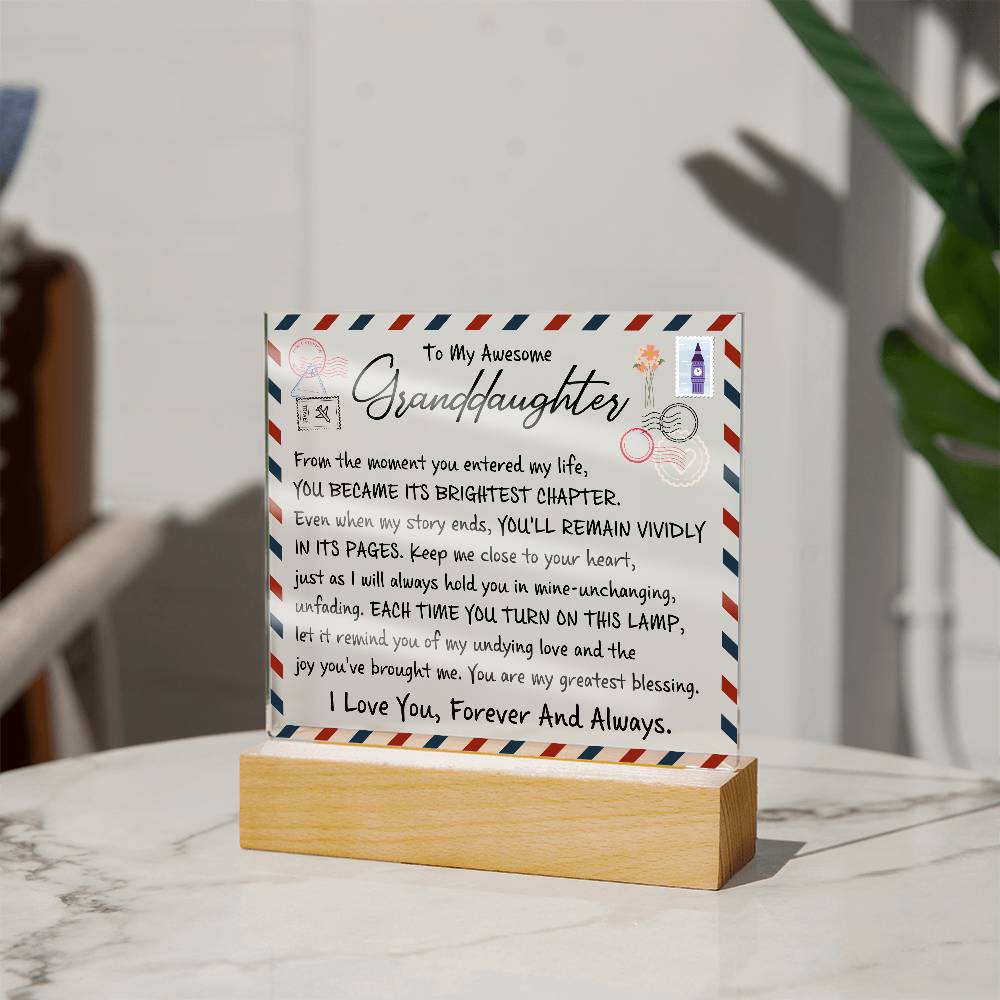 To My Awesome
Granddaughter
From the moment you entered my life,
YOU BECAME ITS BRIGHTEST CHAPTER.
Even when my story ends, YOU'LL REMAIN VIVIDLY
IN ITS PAGES. Keep me close to your heart,
just as I will always hold you in mine-unchanging,
unfading. EACH TIME YOU TURN ON THIS LAMP,
let it remind you of my undying love and the
joy you've brought me. You are my greatest blessing.
I Love You, Forever And Always.